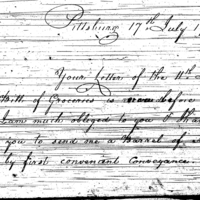 Pittsburg 17th July 1
Your Letter of the 11th
Bill of Groceries is now before
I am much obliged to you I
you to send me a Barrel of
by first convenant Conveyance